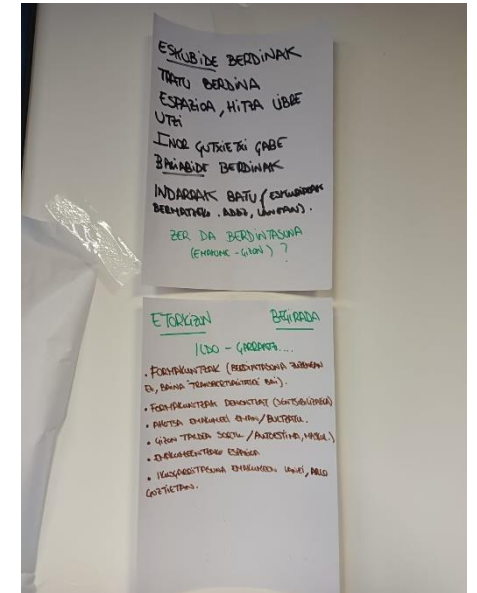 ESKUBIDE BERDINAK
TRATU BERDINA
ESPAZIOA, HITZA LIBRE
UTZI
INOR GUTXIETXI GABE
BALIABIDE BERDINAK
INDARRAK BATU (ESKUBIDEAK
BERMATZEKO. ADBZ, LANEAN).
ZER DA BERDINTASUNA
(EMAKUME - GIZON) ?
ETORKIZUN BEGIRADA
ILDO - GARRANTZ....
• FORMAKUNTZAK (BERDINTASUNA ZUZENEAN
EZ, BAINA TRANSBERTSALITATEA BAI).
• FORMAKUNTZAK DENONTZAT (SENTSIBILIZAZIOA)
• AHOTSA EMAKUMEEI EMAN/BULTZATU.
• GIZON TALDEA SORTU /AUTOESTIMA, MASKUL.)
• EMAKUMEENTZAKO ESPAZIOA
• IKUSGARRITASUNA EMAKUMEEN LANEI, ARLO
GUZTIETAN.